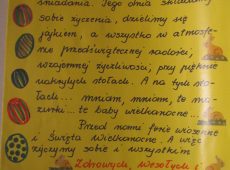 śniadania. Jego dnia składamy
sobie życzenia, dzielimy się
jajkiem, a wszystko w atmosfe-
rze przedświątecznej radości,
wzajemnej życzliwości, przy pięknie
nakrytych stołach. A na tych sto-
łach... mniam, mniam, te ma-
zurki... te baby wielkanocne...
Przed nami ferie wiosenne
i Święta Wielkanocne. A więc
życzymy sobie i wszystkim
Zdrowych, wesołych i